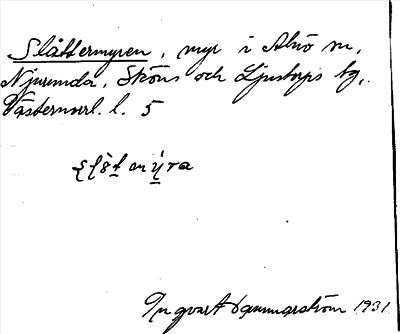 Slåttermyren, myr i Alnö sn,
Njurunda, Sköns och Ljustorps tg,
Västernorrl. l. 5
slǻtmýra
Ingvart Dammarström 1931